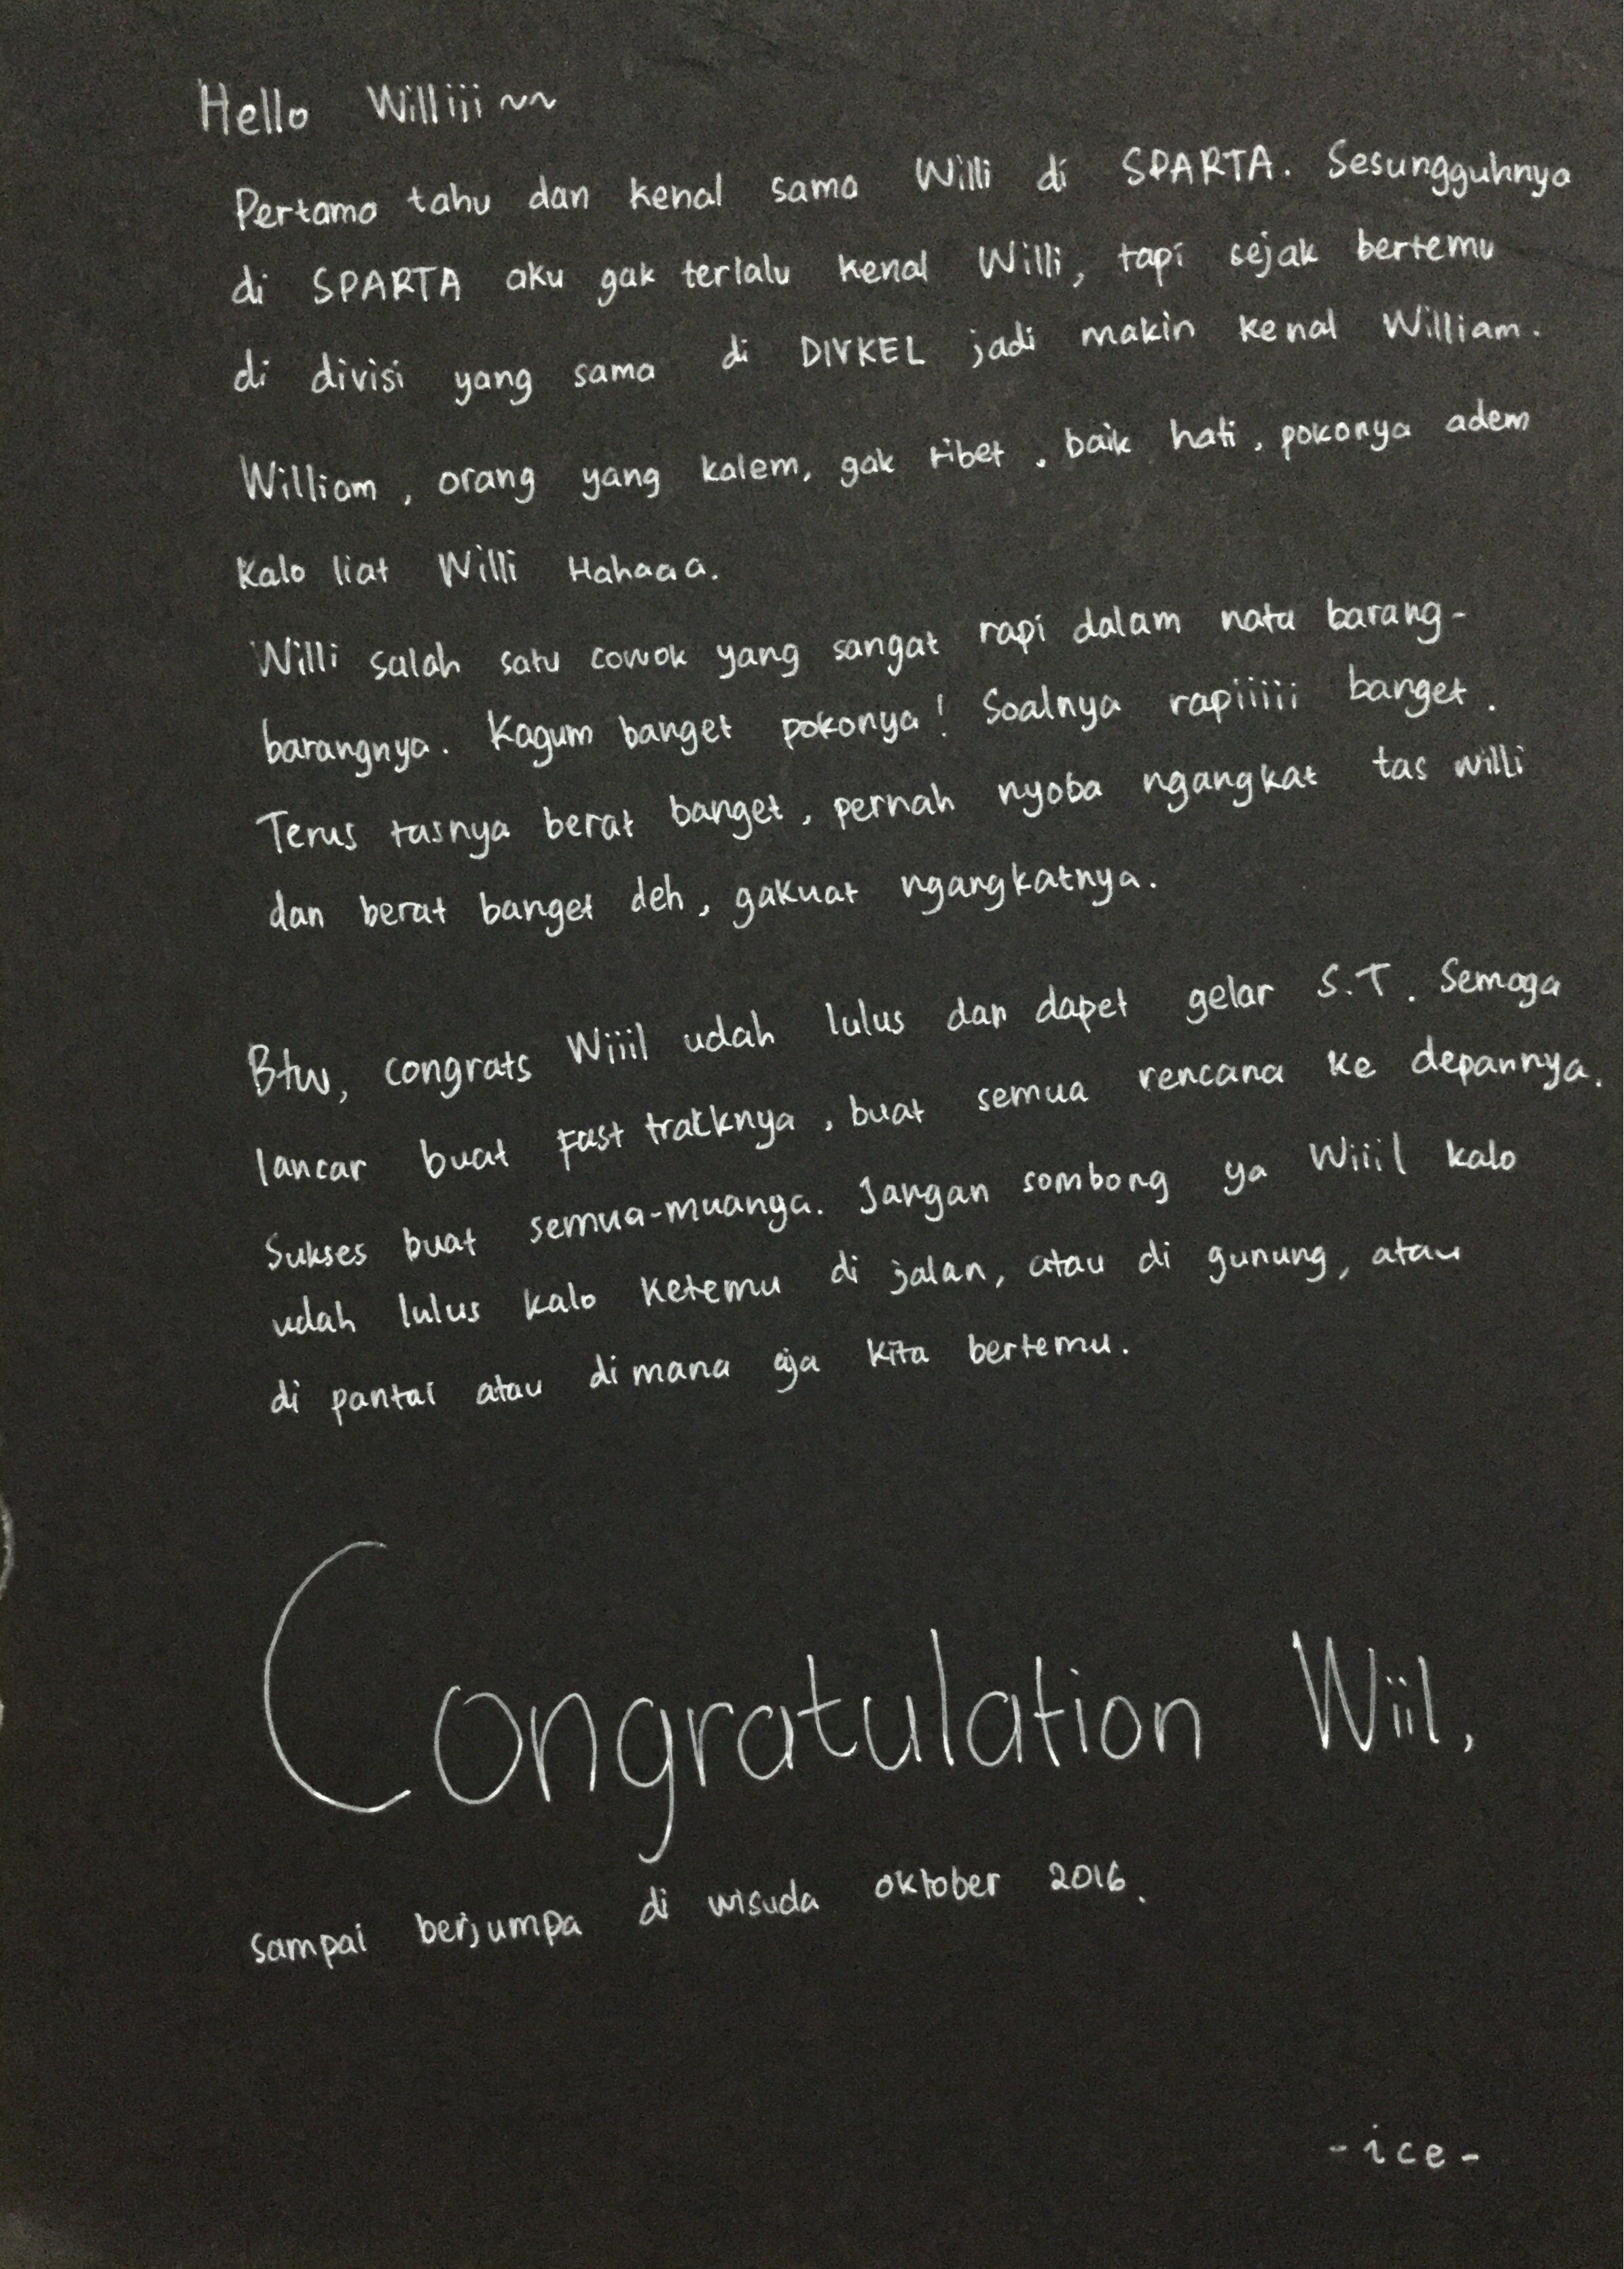 Hello Williii ~~
Pertama tahu dan kenal sama Willi di SPARTA. Sesungguhnya
di SPARTA aku gak terlalu kenal Willi, tapi sejak bertemu
di divisi yang sama di DIVKEL jadi makin kenal William.
William, orang yang kalem, gak ribet, baik hati, pokonya adem
Kalo liat Willi Hahaaa.
Willi salah satu cowok yang sangat rapi dalam nata barang-
barangnya. Kagum banget pokonya! Soalnya rapiiiiii banget.
Terus tasnya berat banget, pernah nyoba ngangkat tas willi
dan berat banget deh, gakuat ngangkatnya.
Btw, congrats Wiiil udah lulus dan dapet gelar S.T. Semoga
lancar buat fast tracknya, buat semua rencana ke depannya.
Sukses buat semua-muanya. Jangan sombong ya Wiiil kalo
udah lulus kalo ketemu di jalan, atau di gunung, atau
di pantai atau di mana aja kita bertemu.
Congratulation Wiil,
sampai berjumpa di wisuda oktober 2016.
-ice-